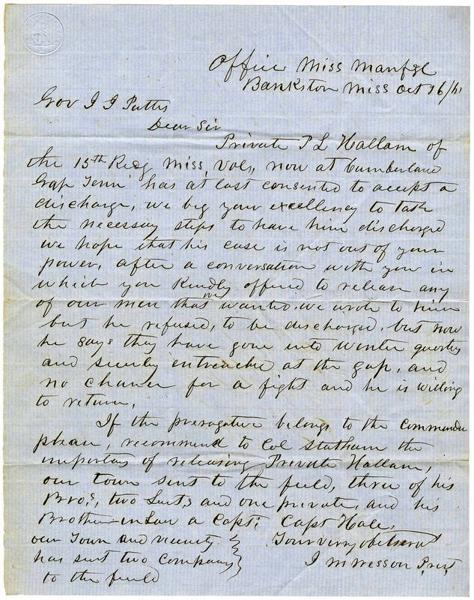 Office Miss Manfg
Bankston Miss Oct 16/61
Gov J J Pettus
Dear Sir
Private P L Hallam of
the 15th Reg Miss, Vols, now at Cumberland
Gap Tenn has at last consented to accept a
discharge, we beg your excellency to take
the necessary steps to have him discharged
we hope that his case is not out of your
power, after a conversation with you in
which you kindly offered to release any
of our men that we wanted, we wrote to him
but he refused, to be discharged, but now
he says they have gone into Winter quarters
and securely entrenched at the gap, and
no chance for a fight and he is willing
to return,
If the prerogative belongs to the commander
please, recommend to Col Statham the
importance of releasing Private Hallam,
our town sent to the field, three of his
Bros, two Lieuts and one private, and his
Brother in Law a Capt; Capt Hale,
our Town and vicinity
has sent two Companys
to the field
Your very obt servt
J M Wesson Prest